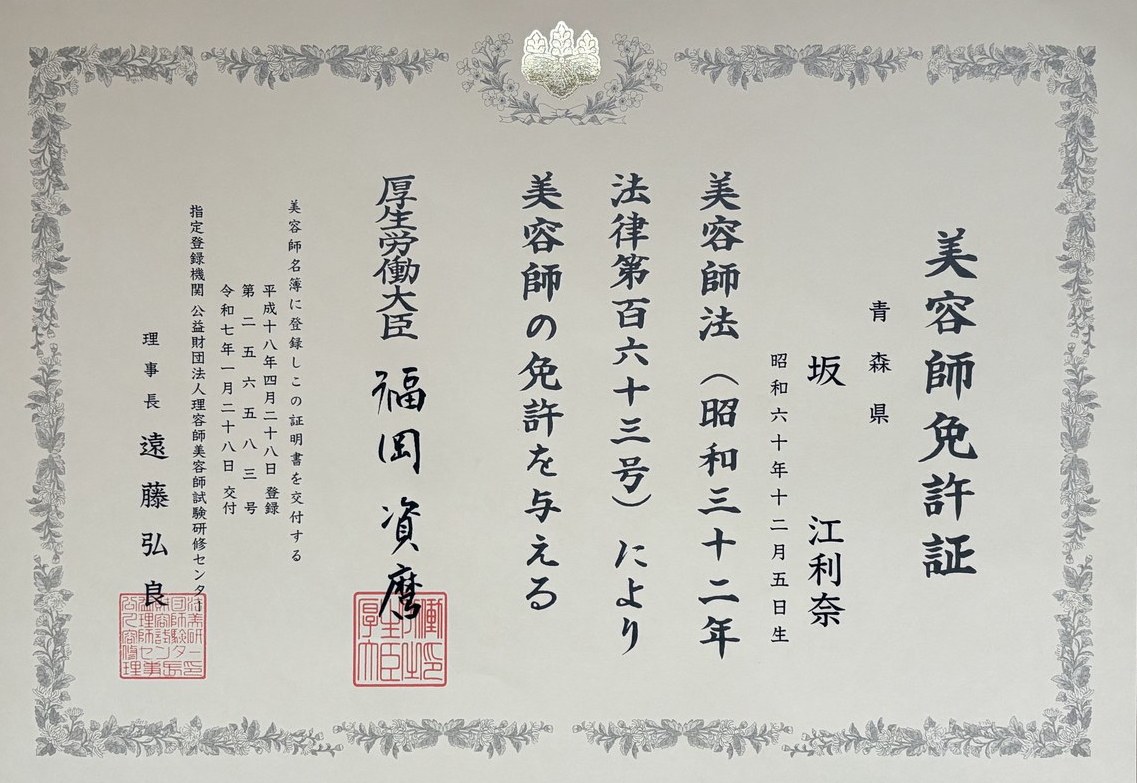 美容師免許証
青森県
坂 江利奈
昭和六十年十二月五日生
美容師法（昭和三十二年
法律第百六十三号）により
美容師の免許を与える
厚生労働大臣 福岡資麿
美容師名簿に登録しこの証明書を交付する
平成十八年四月二十八日 登録
第二五六五八三号
令和七年一月二十八日 交付
指定登録機関 公益財団法人理容師美容師試験研修センター
理事長 遠藤弘良